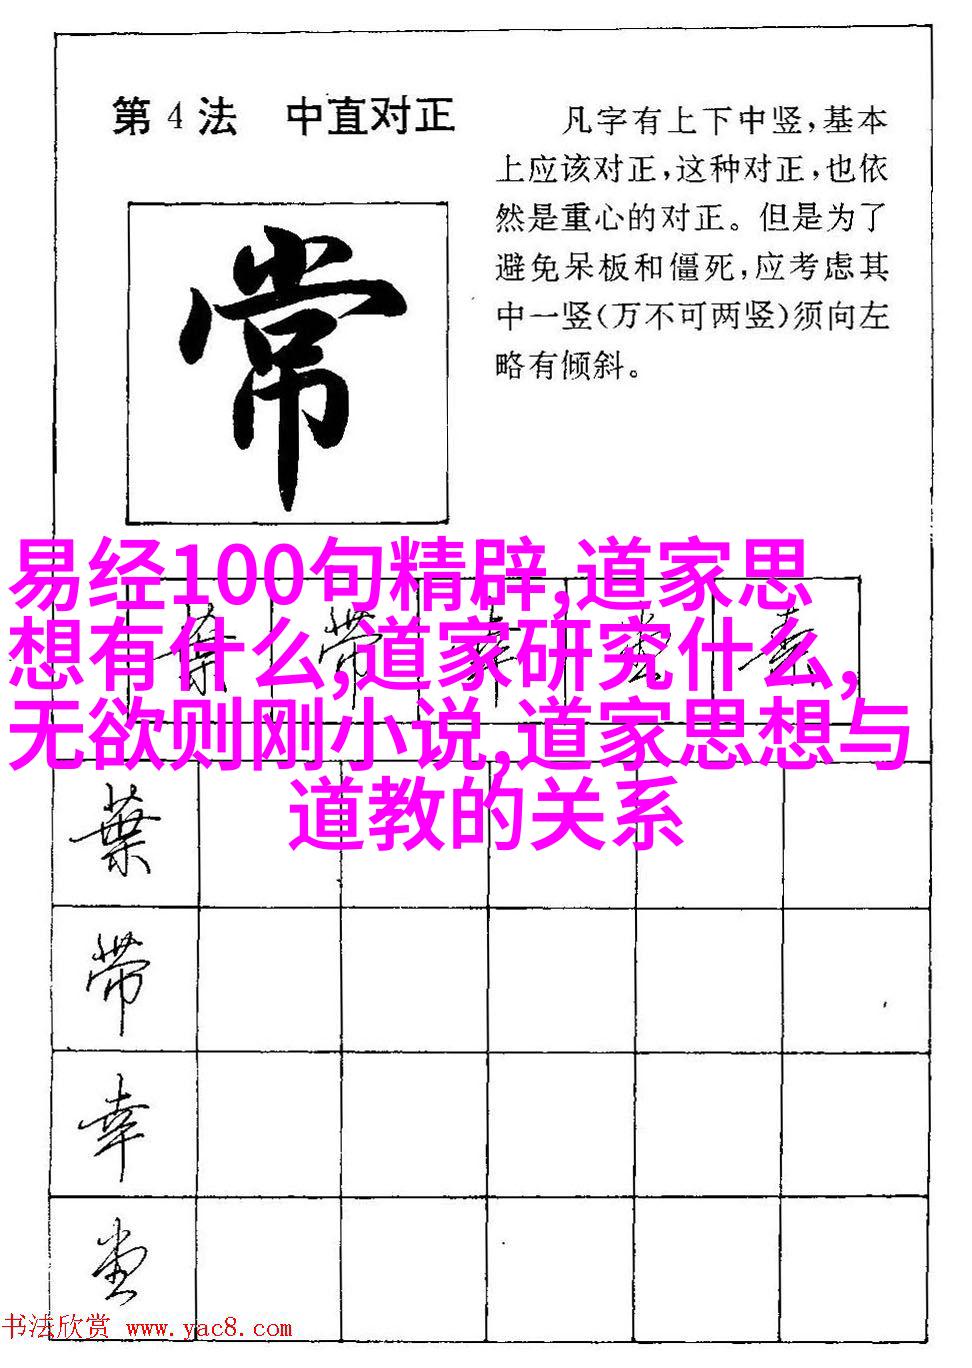 第4法 中直对正
凡字有上下中竖,基本
上应该对正,这种对正,也依
然是重心的对正。但是为了
避免呆板和僵死,应考虑其
中一竖(万不可两竖)须向左
略有倾斜。
常
易经100句精辟,道家思
想有什么,道家研究什么,
无欲则刚小说,道家思想与
道教的关系
葉 带 幸 堂 素
葉
带
幸
堂
书法欣赏 www.yac8.com